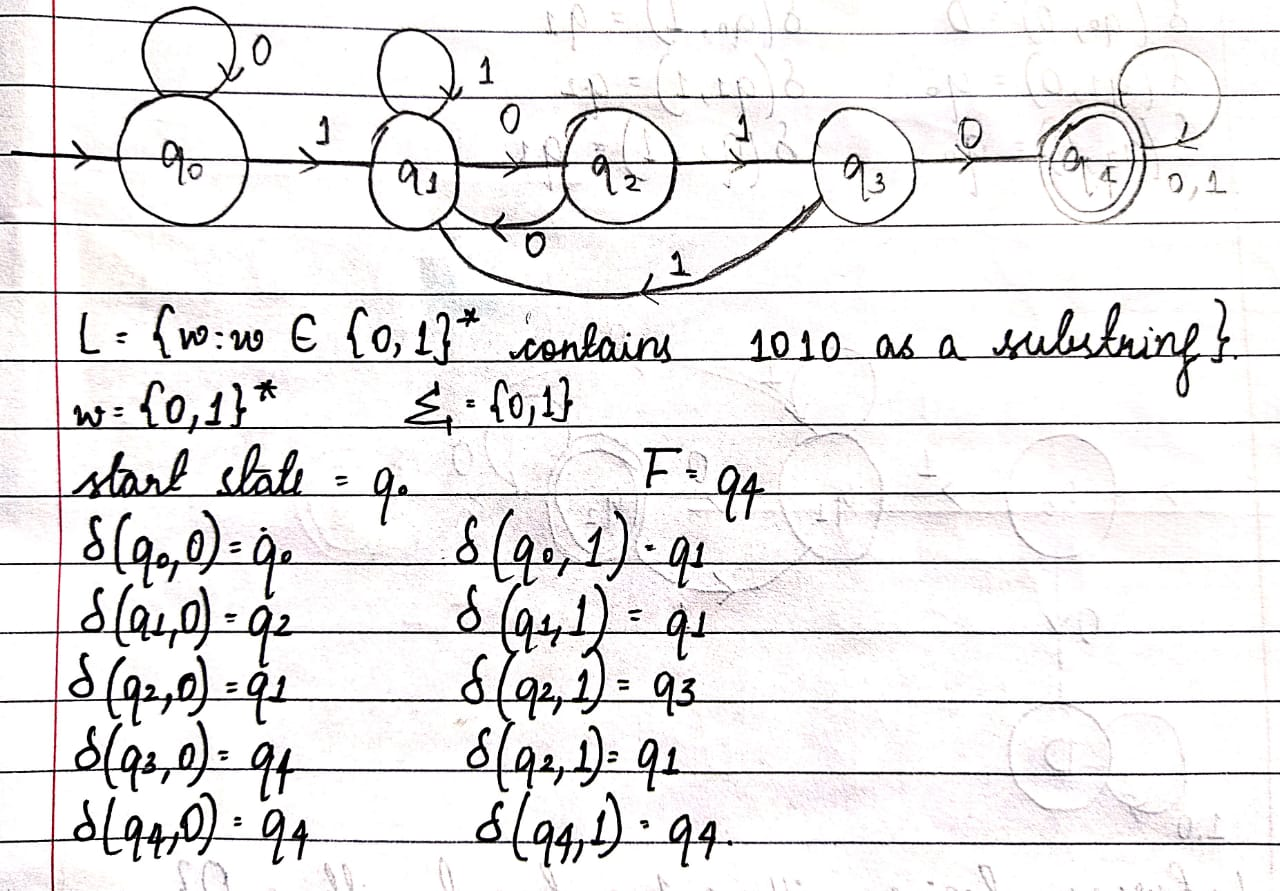 0 1 0 1 0
q0 1 q1 0 q2 1 q3 0 q4 0,1
0 1
L = {w:w ∈ {0,1}* contains 1010 as a substring}.
w = {0,1}* Σ = {0,1}
start state = q0 F = q4
δ(q0,0) = q0 δ(q0,1) = q1
δ(q1,0) = q2 δ(q1,1) = q1
δ(q2,0) = q1 δ(q2,1) = q3
δ(q3,0) = q4 δ(q2,1) = q1
δ(q4,0) = q4 δ(q4,1) = q4.